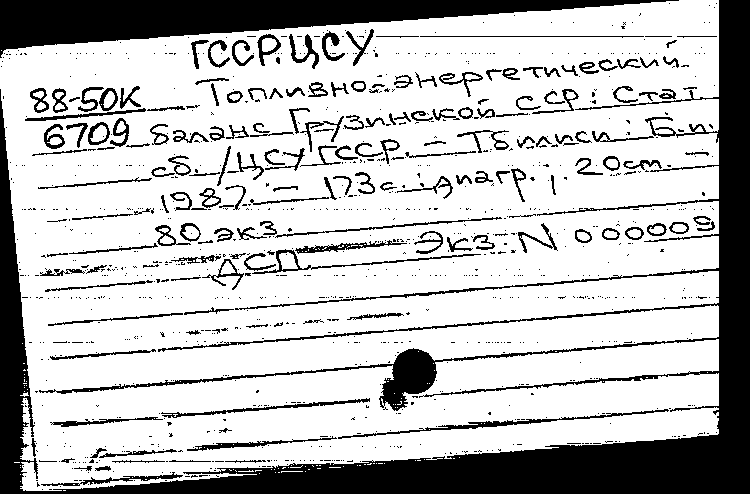 ГССР. ЦСУ.
88-50К Топливно-энергетический
6709 баланс Грузинской ССР: Стат.
сб. / ЦСУ ГССР. - Тбилиси: Б.и.,
1987. - 173 с.: диагр.; 20 см. -
80 экз.
ДСП. Экз. N 000009